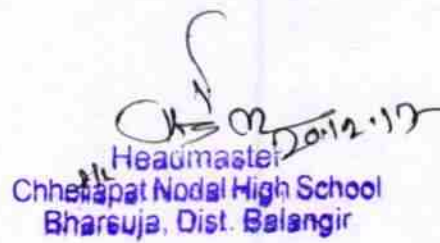 20.12.17
Headmaster
Chhatapat Nodal High School
Bharsuja, Dist. Balangir